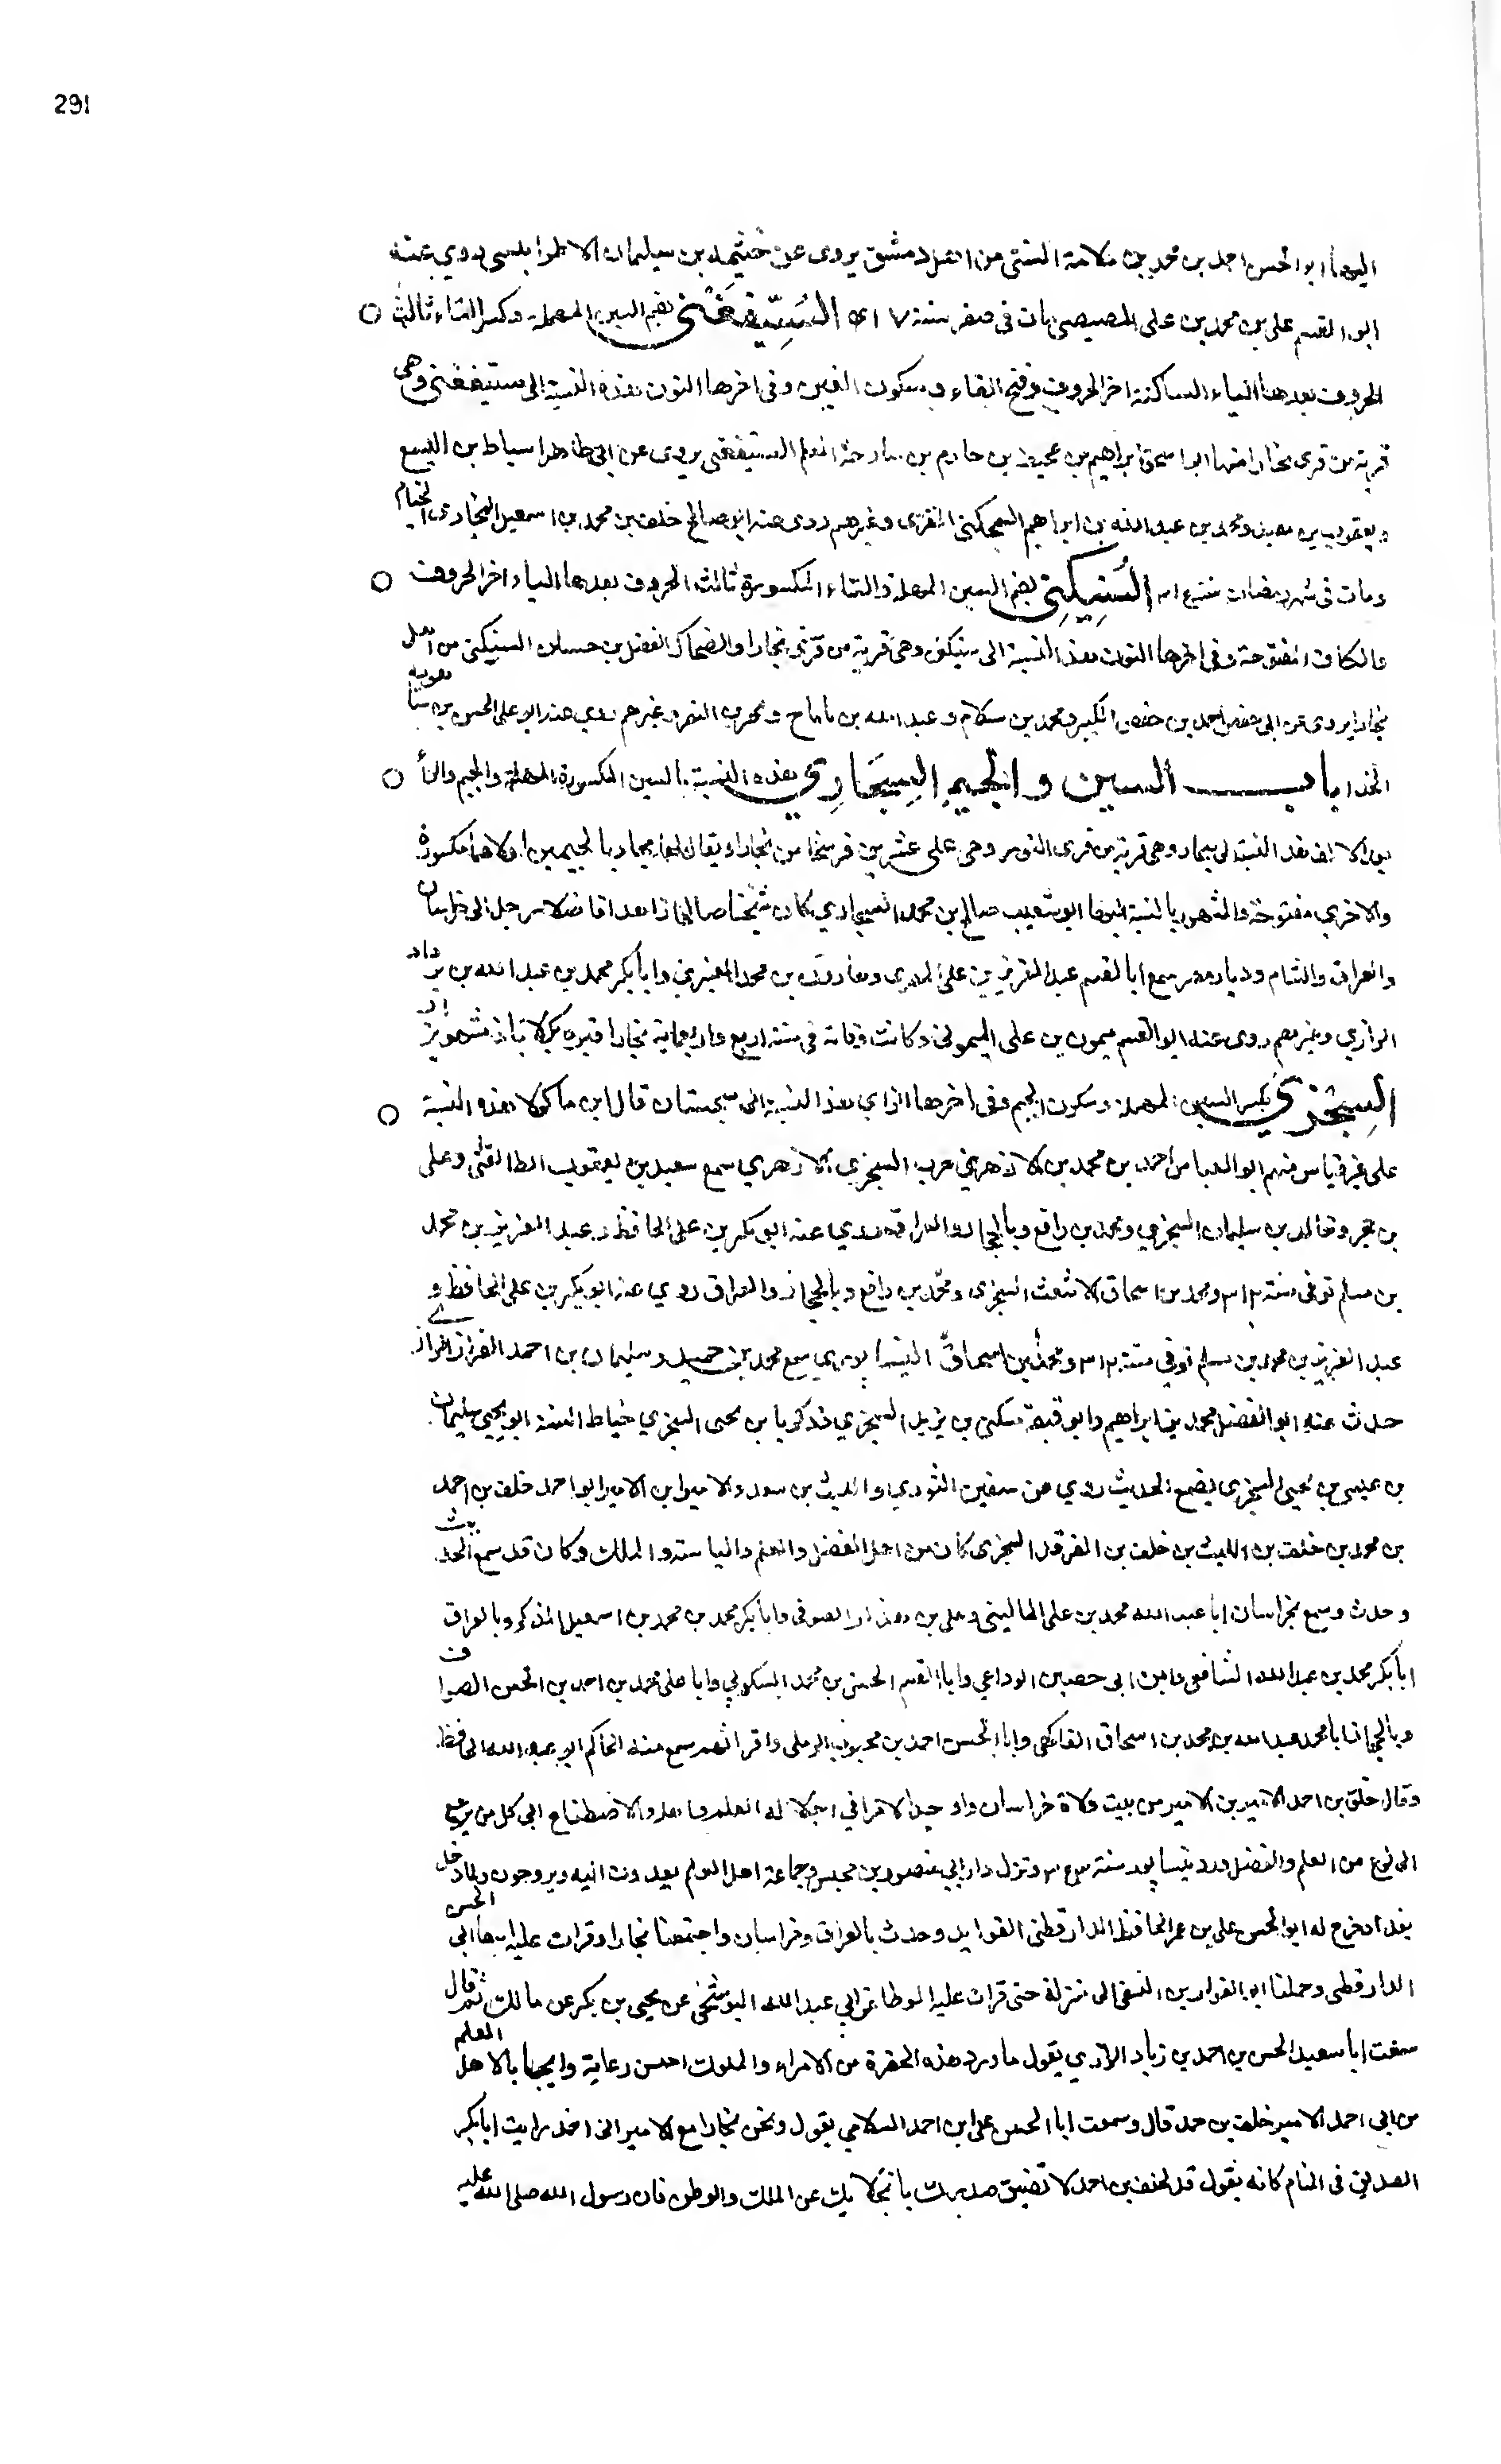 291
اليها ابو الحسن احمد بن محمد بن سلامة الستى من اهل دمشق يروى عن خيثمة بن سليمان الاطرابلسى روي عنه
ابو القسم على بن محمد بن على المصيصى مات فى صفر سنة ٤١٧ السُتِيفَغْنِى بضم السين المهملة وكسر التاء ثالث
الحروف بعدها الياء الساكنة اخر الحروف وفتح الفاء وسكون الغين وفى اخرها النون هذه النسبة الى ستيفغنى وهى
قرية من قرى بخارا منها ابو اسحق ابراهيم بن محيط بن حازم بن المعلم الستيفغنى يروى عن ابى طاهر اسباط بن اليسع
ويعقوب بن معبد ومحمد بن عبد الله بن ابراهيم السمجكثى المقرى وغيرهم روى عنه ابو صالح خلف بن محمد بن اسمعيل البخارى الخيام
ومات فى شهر رمضان سنة السُتِيكَنِى بضم السين المهملة والتاء المكسورة ثالث الحروف بعدها الياء اخر الحروف
والكاف المفتوحة وفى اخرها النون هذه النسبة الى ستيكن وهى قرية من قرى بخارا والضحاك الفضل بن حسان الستيكنى من اهل
بخارا يروى عن ابى حفص احمد بن حفص الكبير ومحمد بن سلام وعبد الله بن وغيرهم روي عنه ابو على الحسن بن
باب السين والجيم السِجَارِي هذه النسبة بالسين المكسورة المهملة والجيم والرا
بعد الالف هذه النسبة الى سجار وهى قرية من قرى النور وهى على عشرين فرسخا من بخارا ويقال لها ججار بالجيمين اولاهما مكسورة
والاخرى مفتوحة والمشهور بالنسبة اليها ابو شعيب صالح بن محمد السجاري كان شيخا صالحا زاهدا فاضلا رحل الى خراسان
والعراق والشام وديار مصر سمع ابا القسم عبد العزيز بن على وهارون بن محمد وابا بكر محمد بن عبد الله بن يزداد
الرازي وغيرهم روى عنه ابو القسم ميمون بن على الميمونى وكانت وفاته فى سنة اربع واربعماية بخارا قبره
السِجْزِي بكسر السين المهملة وسكون الجيم وفى اخرها الزاي هذه النسبة الى سجستان قال ابن ماكولا هذه النسبة
على غير قياس منهم ابو العباس احمد بن محمد بن الازهر بن حرب السجزي الازهري سمع سعيد بن يعقوب الطالقانى وعلى
بن حجر وخالد بن سليمان السجزي ومحمد بن رافع وبالحجاز والعراق روي عنه ابو بكر بن على الحافظ وعبد العزيز بن محمد
بن مسلم توفى سنة ٣١٢ ومحمد بن اسحاق الاشعث السجزى ومحمد بن رافع وبالحجاز والعراق روي عنه ابو بكر بن على الحافظ و
عبد العزيز بن محمد بن مسلم توفي سنة ٣١٢ ومحمد بن اسحاق النيسابوري سمع محمد بن حميد وسليمان بن احمد القزاز
حدث عنه ابو الفضل محمد بن ابراهيم وابو قتيبة مسكين بن يزيد السجزي وزكريا بن يحيى السجزي خياط السنة ابو يحيى سليمان
بن عيسى بن يحيى السجزى يضع الحديث روي عن سفين الثوري والليث بن سعد والامير ابن الامير ابو احمد خلف بن احمد
بن محمد بن خلف بن الليث بن خلف بن الفرقد السجزى كان من اهل الفضل والعلم والسياسة والملك وكان قد سمع الحديث
وحدث وسمع بخراسان ابا عبد الله محمد بن على المالينى وعلى بن بندار الصوفى وابا بكر محمد بن محمد بن اسمعيل المذكر وبالعراق
ابا بكر محمد بن عبد الله الشافعى وابن ابى حصين الوداعي وابا القسم الحسن بن محمد السكونى وابا على محمد بن احمد بن الحسن الصواف
وبالحجاز ابا محمد عبد الله بن محمد بن اسحاق الفاكهى وابا الحسن احمد بن محبوب الرملى واقرانهم سمع منه الحاكم ابو عبد الله الحافظ
وقال خلف بن احمد الامير بن الامير من بيت ولاة خراسان واوحد الامرا فى اجلاله العلم واهله والاصطناع الى كل من يرجع
الى نوع من العلم والفضل ورد نيسابور سنة ونزل دار ابي منصور بن محبس وجماعة اهل العلم يعدون اليه ويروحون ولما دخل
بغداد خرج له ابو الحسن على بن عمر الحافظ الدارقطنى الفوايد وحدث بالعراق وخراسان واجتمعنا بخارا وقرات عليه ابى الحسن
الدارقطنى وحملنا ابو الفوارس النسفى الى منزله حتى قرات عليه الموطا عن ابي عبد الله البوشنجى عن يحيى بن بكير عن مالك ثم قال
سمعت ابا سعيد الحسن بن احمد بن زياد الرازي يقول ما ورد هذه الحضرة من الامراء والملوك احسن رعاية وايجابا لاهل العلم
من ابى احمد الامير خلف بن احمد قال وسمعت ابا الحسن على بن احمد السلامي يقول ونحن بخارا مع الامير رايت ابا بكر
الصديق فى المنام كانه يقول قل لخلف بن احمد لا تضيق صدرك عن الملك والوطن فان رسول الله صلى الله عليه